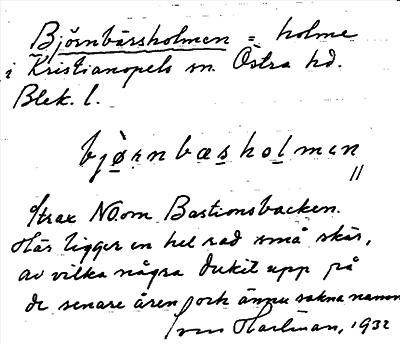 Björnbärsholmen = holme
i Kristianopels sn. Östra hd.
Blek. l.
bjòrnbæsholmen
Strax NO om Bastionsbacken.
Här ligger en hel rad små skär,
av vilka några dukit upp på
de senare åren, och ännu sakna namn
Sven Hartman, 1932